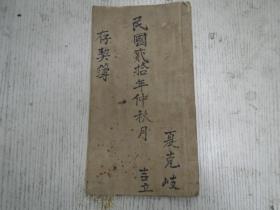 夏克岐
民國貳拾年仲秋月 吉立
存契簿